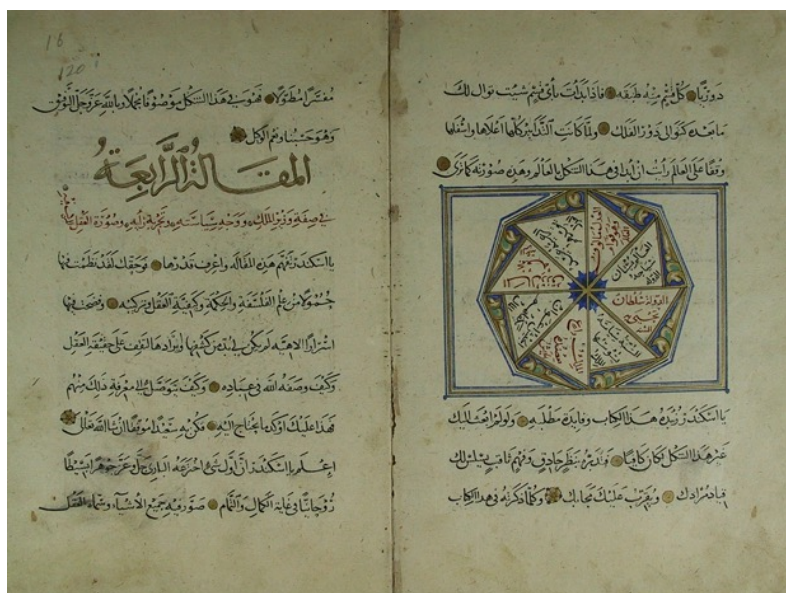 دوريا كل قسم منه طبقه فاذا بدأت بأي قسم شيت توالى لك
ما بعده كتوالي دور الفلك ولما كانت التدابير كلها اعلاها واسفلها
وقفا على العالم رأيت ان ابدا في هذا الشكل بالعالم وهذه صورته كما ترى
العالم بستان
سياجه
الدولة
الدولة سلطان
تحيى به
السنه
السنة سياسة
يسوسها
الملك
العدل مالوف
وهو قوام
العالم
يا اسكندر زبدة هذا الكتاب وفايدة مطلبه ولو لم ابعث اليك
غير هذا الشكل لكان كافيا فتدبره بنظر صادق وفهم ثاقب يسلس لك
قياد مرادك ويقرب عليك محابك وكلما ذكرته في هذا الكتاب
16
120
مفسرا مطولا فهو في هذا الشكل موصوفا مجملا وبالله عز وجل التوفيق
وهو حسبنا ونعم الوكيل
المقالة الرابعة
في صفة وزير الملك ووجه سياسته وتجربة رايه وصورة العقل
يا اسكندر تفهم هذه المقاله واعرف قدرها فوحقك لقد نظمت فيها
جمولا من علم الفلسفة والحكمة وكيفية العقل وتركيبه وفضحت فيها
اسرارا الاهيه لم يكن لي بد من كشفها ليرادها لتقف على حقيقة العقل
وكيف وضعه الله في عباده وكيف يتوصل الى معرفة ذلك منهم
فهذا عليك اوكد ما تحتاج اليه فكن به سعيدا موفقا ان شاء الله تعالى
اعلم يا اسكندر ان اول شي اخترعه الباري جل وعز جوهرا بسيطا
روحانيا في غاية الكمال والتمام صور فيه جميع الاشياء وسماه العقل